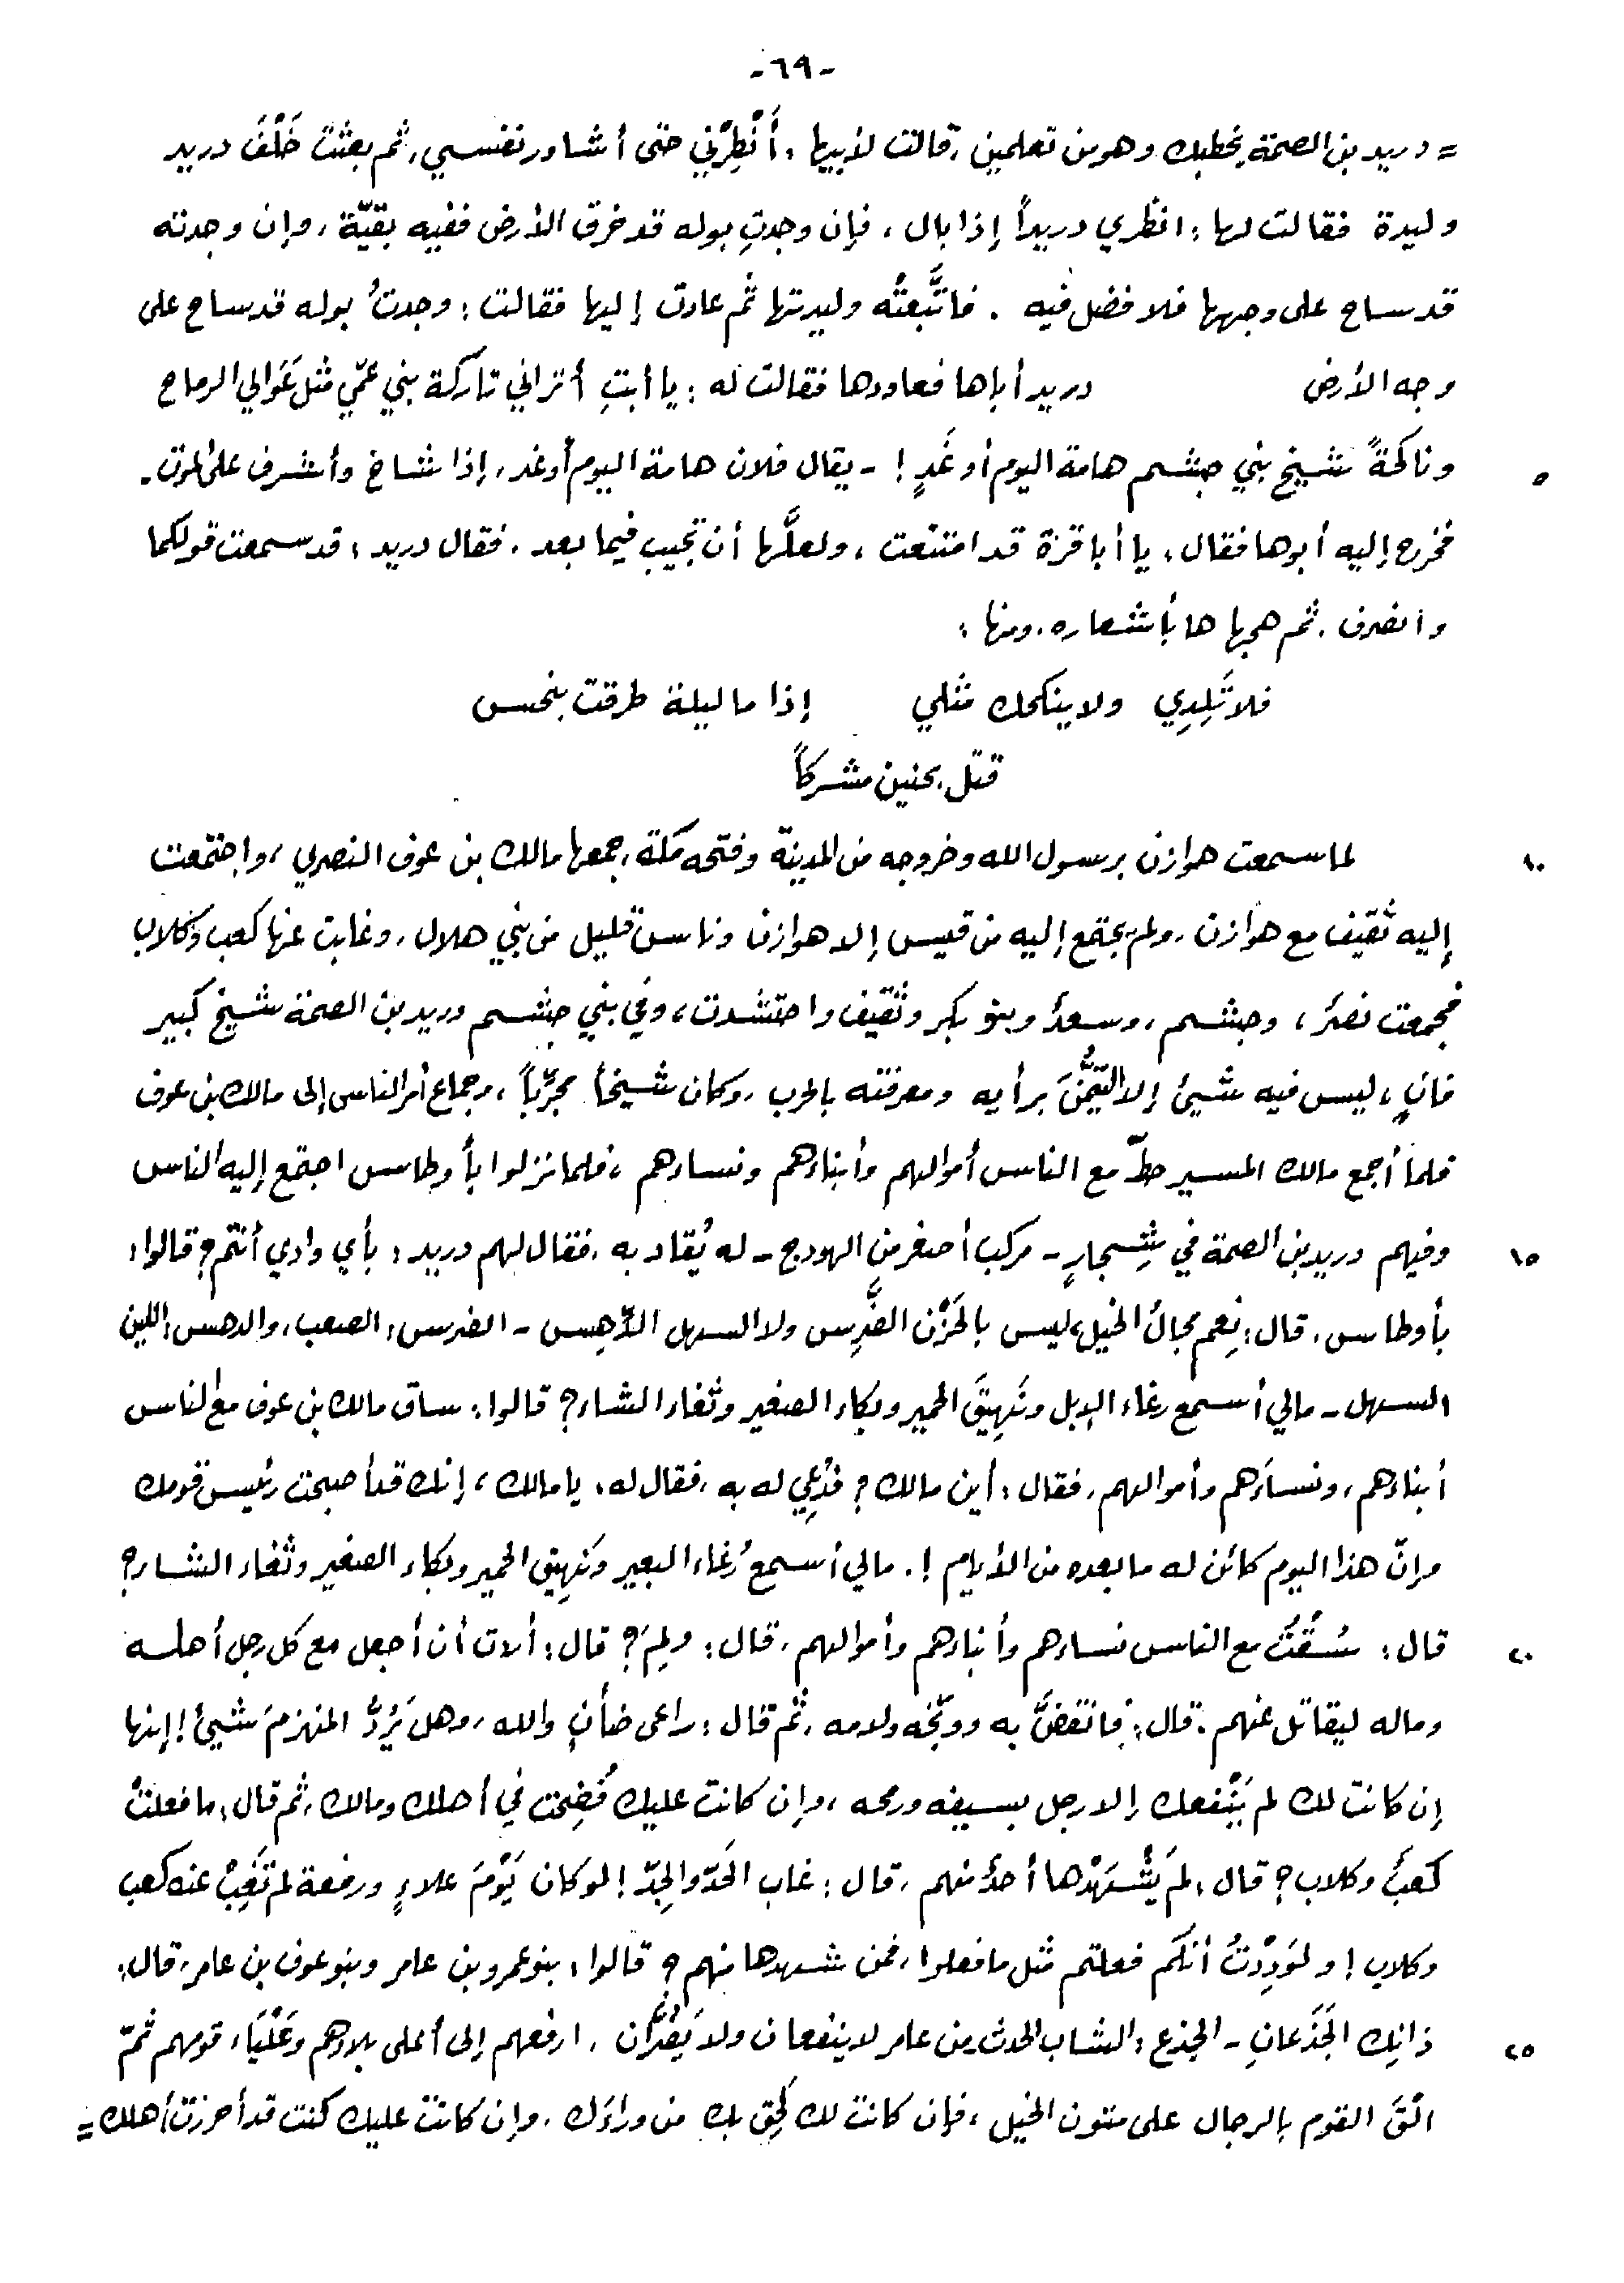 -٦٩-
= دريد بن الصمة يخطبك وهو من تعلمين، قالت لأبيها، أَنْظِرْني حتى أشاور نفسي، ثم بعثت خَلْفَ دريد
وليدة فقالت لها: انظري دريداً إذا بال، فإن وجدتِ بوله قد خرق الأرض ففيه بقيّة، وإن وجدته
قد ساح على وجهها فلا فضل فيه . فاتَّبعتْه وليدتها ثم عادت إليها فقالت: وجدتُ بوله قد ساح على
وجه الأرض دريد أباها فعاودها فقالت له: يا أبتِ أتراني تاركة بني عمّي مثل عَوَالي الرماح
٥ وناكحةً شيخ بني جشم هامة اليوم أو غَدٍ! - يقال فلان هامة اليوم أو غد، إذا شاخ وأشرف على الموت -
فخرج إليه أبوها فقال: يا أبا قرة قد امتنعت، ولعلَّها أن تجيب فيما بعد، فقال دريد: قد سمعت قولكما
وانصرف، ثم هجاها بأشعاره، ومنها:
فلا تَلِدِي ولا ينكحك مثلي إذا ما ليلة طرقت بنحس
قتل بحنين مشركاً
١٠ لما سمعت هوازن برسول الله وخروجه من المدينة وفتحه مكة، جمعها مالك بن عوف النصري، واجتمعت
إليه ثقيف مع هوازن، ولم يجتمع إليه من قيس إلا هوازن وناس قليل من بني هلال، وغابت عنها كعب وكلاب
فجمعت نصرٌ، وجشم، وسعدٌ وبنو بكر وثقيف واحتشدت، وفي بني جشم دريد بن الصمة شيخ كبير
فانٍ، ليس فيه شيئ إلا التيمُّنَ برأيه ومعرفته بالحرب، وكان شيخاً مجرّباً، وجماع أمر الناس إلى مالك بن عوف
فلما أجمع مالك المسير حطّ مع الناس أموالهم وأبناءهم ونساءهم، فلما نزلوا بأوطاس اجتمع إليه الناس
١٥ وفيهم دريد بن الصمة في شِجارٍ - مركب أصغر من الهودج - له يُقاد به، فقال لهم دريد: بأي وادي أنتم؟ قالوا:
بأوطاس، قال: نِعم مجالُ الخيل، ليس بالحَزْن الضَّرِس ولا السهل الدَّهِس - الضرس: الصعب، والدهس: اللين
السهل - مالي أسمع رغاء الإبل ونَهِيقَ الحمير وبكاء الصغير وثغاء الشاء؟ قالوا: ساق مالك بن عوف مع الناس
أبناءهم، ونساءَهم وأموالهم، فقال: أين مالك؟ فدُعِي له به، فقال له: يا مالك، إنك قد أصبحت رئيس قومك
وإنّ هذا اليوم كائن له ما بعده من الأيام!. مالي أسمع رُغاء البعير ونَهِيق الحمير وبكاء الصغير وثُغاء الشاء؟
٢٠ قال: سُقْتُ مع الناس نساءهم وأبناءهم وأموالهم، قال: ولِمَ؟ قال: أردت أن أجعل مع كل رجل أهله
وماله ليقاتل عنهم. قال: فانقضَّ به ووبّخه ولامه، ثم قال: راعي ضأنٍ والله، وهل يَرُدُّ المنهزمَ شيئ! إنها
إن كانت لك لم يَنْفعك إلا رجل بسيفه ورمحه، وإن كانت عليك فُضِحت في أهلك ومالك، ثم قال: ما فعلتْ
كعبٌ وكلاب؟ قال: لم يَشْهَدْها أحدٌ منهم، قال: غاب الحَدّ والجِدّ! لو كان يَوْمَ علاءٍ ورفعة لم تَغِبْ عنه كعب
وكلاب! ولوَدِدْتُ أنكم فعلتم مثل ما فعلوا، فمن شهدها منهم؟ قالوا: بنو عمرو بن عامر وبنو عوف بن عامر، قال:
٢٥ ذانِك الجَذَعانِ - الجذع: الشاب الحدث من عامر لا ينفعان ولا يَضُرَّان، ارفعهم إلى أعلى بلادهم وعَلْيَاء قومهم ثمّ
الْقَ القوم بالرجال على متون الخيل، فإن كانت لك لَحِق بك من وراءَك، وإن كانت عليك كنت قد أحرزت أهلك =